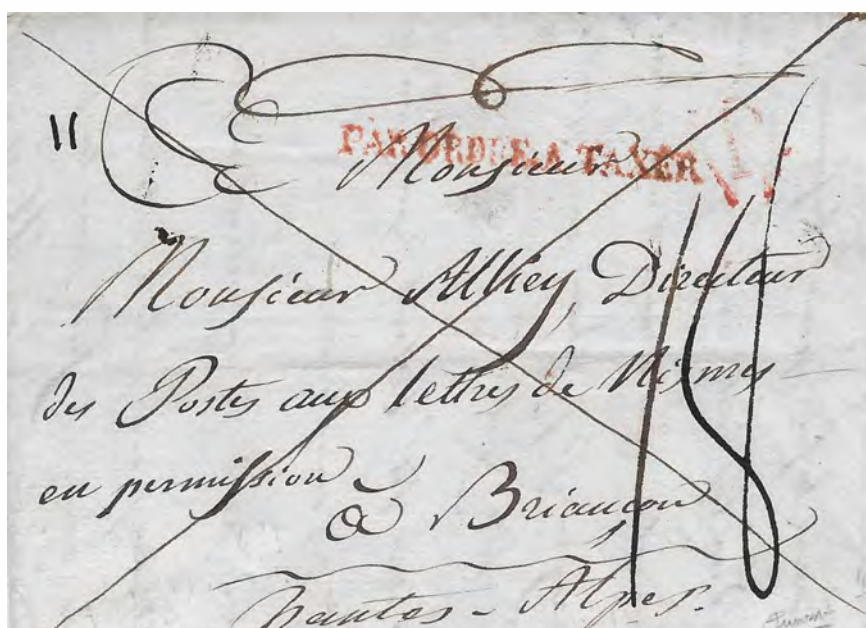 11
PAR ORDRE A TAXER
Monsieur
Monsieur Alliey, Directeur
des Postes aux lettres de Nismes
en permission
à Briançon
hautes - Alpes.